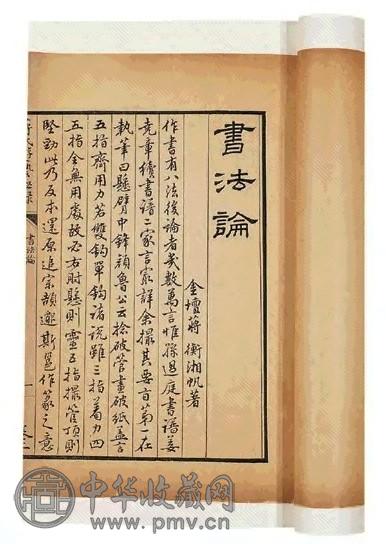 書法論
金壇蔣衡湘帆著
作書有八法後論者幾數萬言惟孫過庭書譜姜
堯章續書譜二家言家詳余撮其要旨第一在
執筆曰懸臂中鋒顏魯公云捻破管畫破紙蓋言
五指齊用力若雙鉤單鉤諸說雖三指著力四
五指全無用處故必方肘懸則靈五指撮管頂則
堅勁此乃反本還原追宗韻邈斯邕作篆之意
書法論
一
中华收藏网
www.pmv.cn